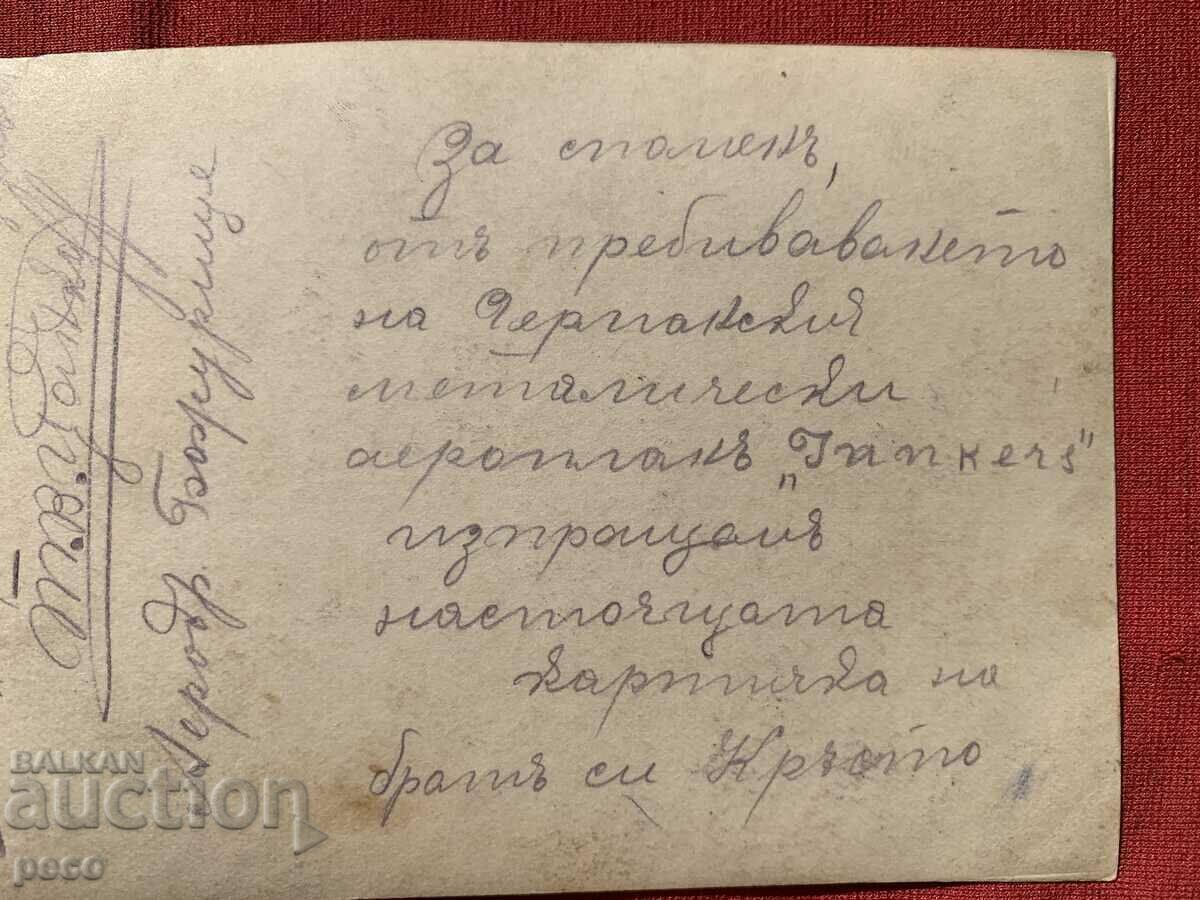 За спомекъ,
отъ пребиваването
на Германския
металически
аеропланъ „Junkers"
изпращамъ
настоящата
картичка на
братъ си Кръсто
Аеродр. Божурище
BALKAN
auction
peco